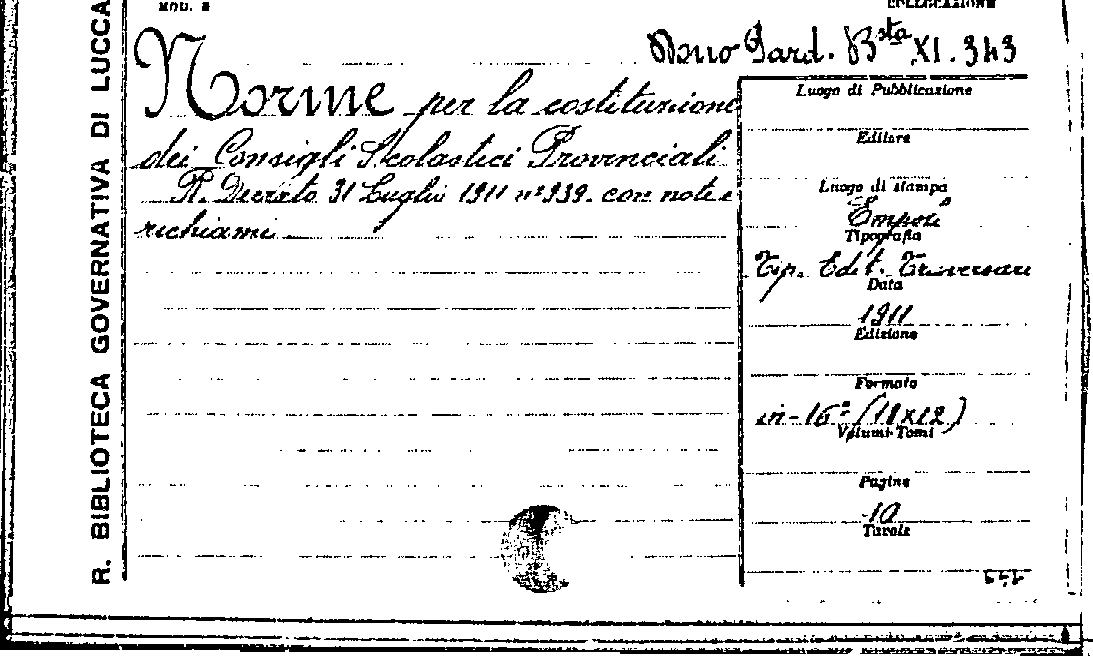 MOD. 2
COLLOCAZIONE
Dono Gard. Bsta XI. 343
R. BIBLIOTECA GOVERNATIVA DI LUCCA
Norme per la costituzione
dei Consigli Scolastici Provinciali
R. Decreto 31 Luglio 1911 n° 939. con note e
richiami
Luogo di Pubblicazione
Editore
Luogo di stampa
Empoli
Tipografia
Tip. Edit. Traversari
Data
1911
Edizione
Formato
in-16° (18x12)
Volumi-Tomi
Pagine
10
Tavole